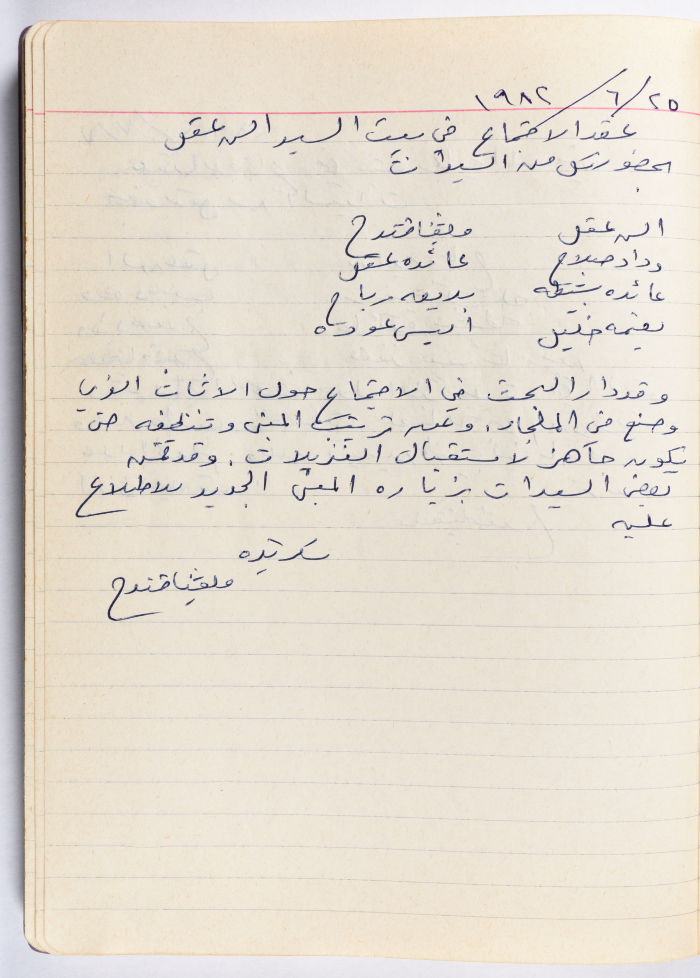 ٢٥/ ٦/ ١٩٨٢
عقد الاجتماع في بيت السيد السن عقل
بحضور كل من السيدات
السن عقل ملفينا قندح
وداد صلاح عائده عقل
عائده شتيه بديعه رباح
نعيمه خليل اديس عوده
وقد دار البحث في الاجتماع حول الاثاث الذي
وضع في المنجر. وعن ترتيب المبنى وتنظيفه حتى
يكون جاهز لاستقبال النزيلات. وقد قمن
بعض السيدات بزياره المبنى الجديد للاطلاع
عليه
سكرتيره
ملفينا قندح